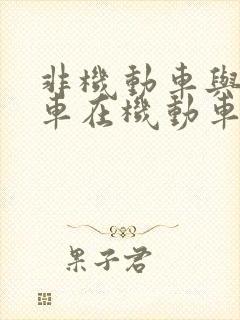 非機動車與
車在機動車
果子君